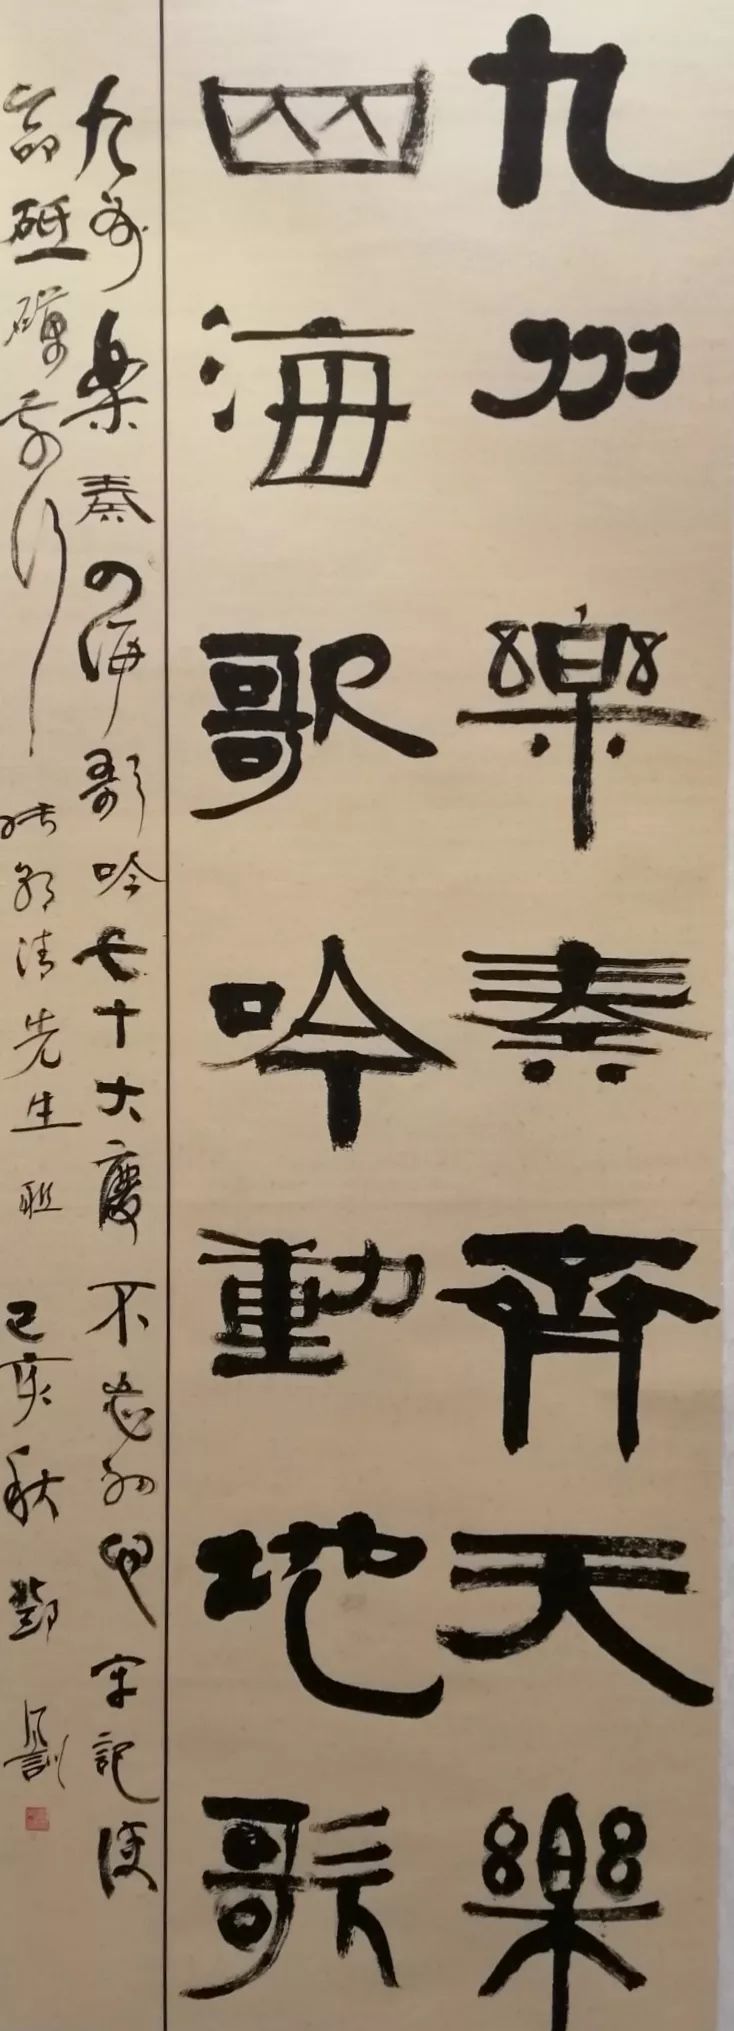 九州樂奏齊天樂
四海歌吟動地歌
九州樂奏四海歌吟七十大慶不忘初心牢記使
命砥礪前行 張郁清先生联 己亥秋 鄧